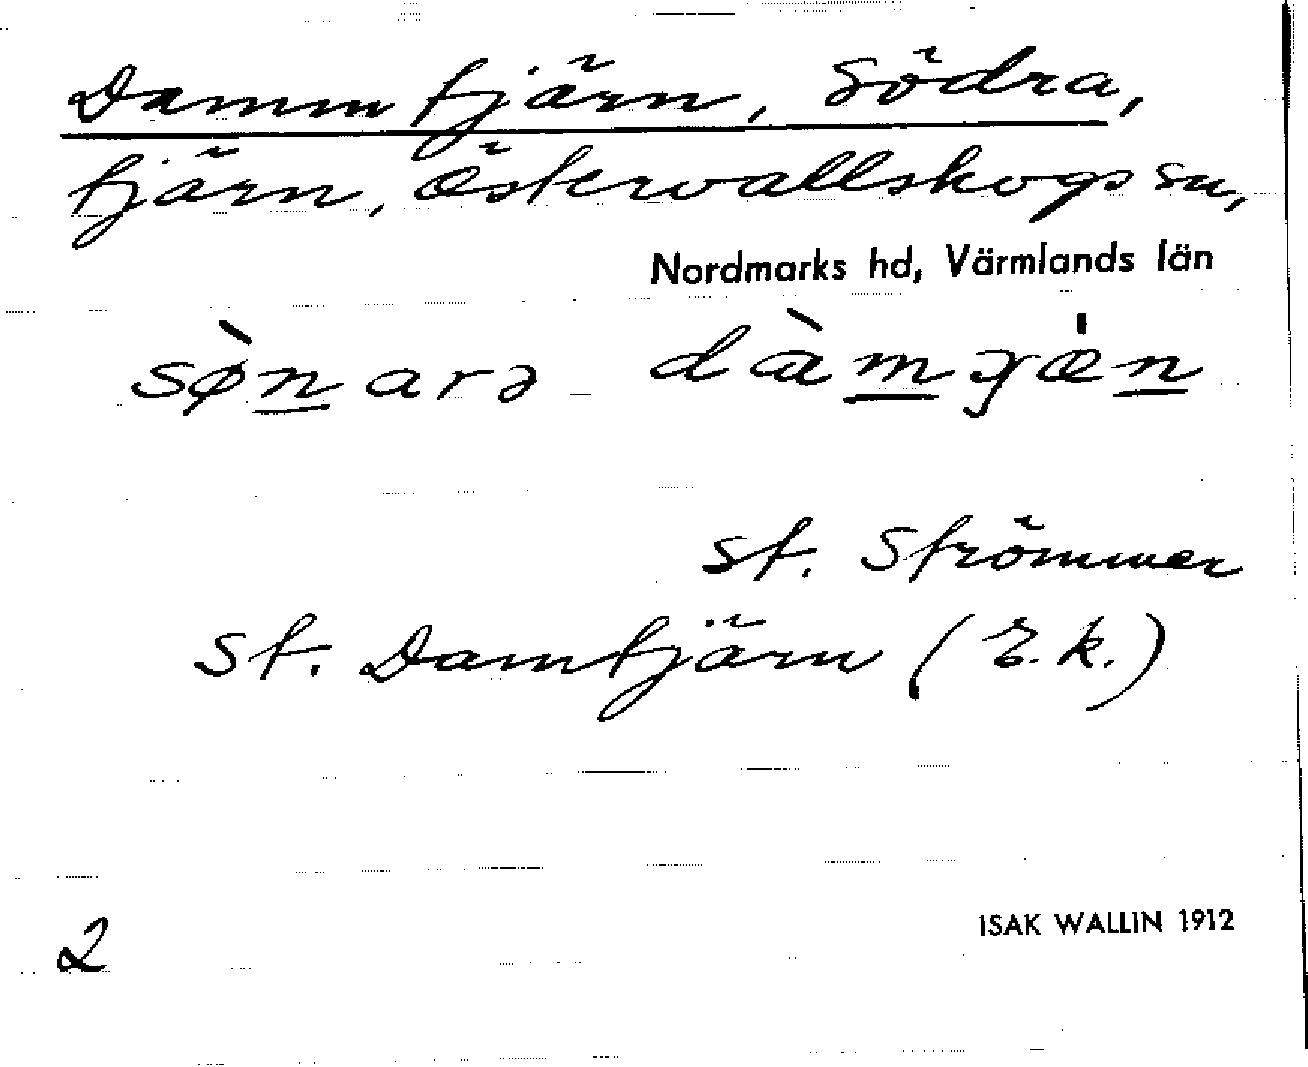 Dammtjärn, Södra,
tjärn, Östervallskogs sn,
Nordmarks hd, Värmlands län
sø̀narə dàmɟæ̍n
St. Strömmer
St. Damtjärn (E.k.)
2
ISAK WALLIN 1912